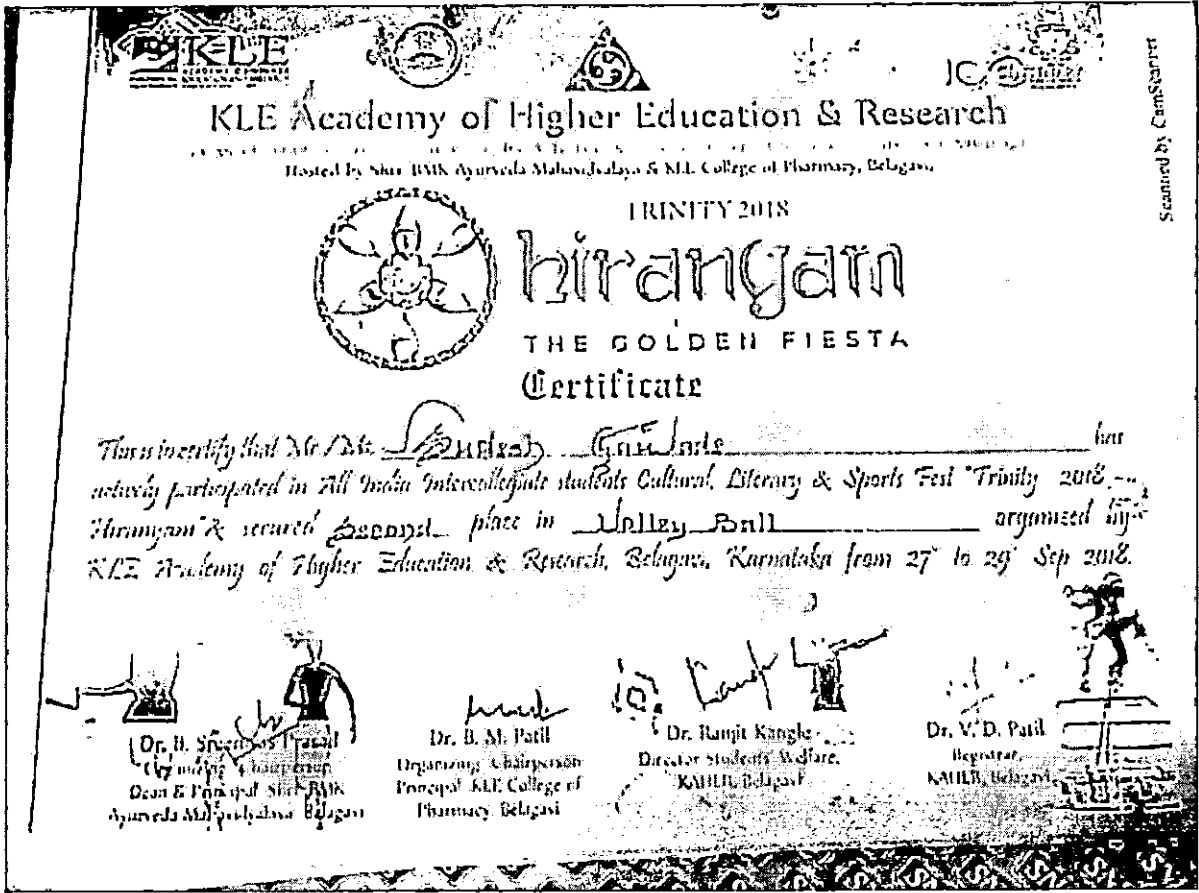 KLE
JC
KLE Academy of Higher Education & Research
Hosted by Shri BMK Ayurveda Mahavidyalaya & KLE College of Pharmacy, Belagavi
TRINITY 2018
hiranyam
THE GOLDEN FIESTA
Certificate
This is to certify that Mr./Ms. has
actively participated in All India Intercollegiate students Cultural, Literary & Sports Fest "Trinity 2018
Hiranyam" & secured Second place in Volley Ball organized by
KLE Academy of Higher Education & Research, Belagavi, Karnataka from 27 to 29 Sep 2018.
Dr. B. Prasad
Organizing Chairperson
Dean & Principal Shri BMK
Ayurveda Mahavidyalaya Belagavi
Dr. B. M. Patil
Organizing Chairperson
Principal KLE College of
Pharmacy Belagavi
Dr. Ranjit Kangle
Director Students' Welfare,
KAHER, Belagavi
Dr. V. D. Patil
Registrar,
KAHER, Belagavi
Scanned by CamScanner